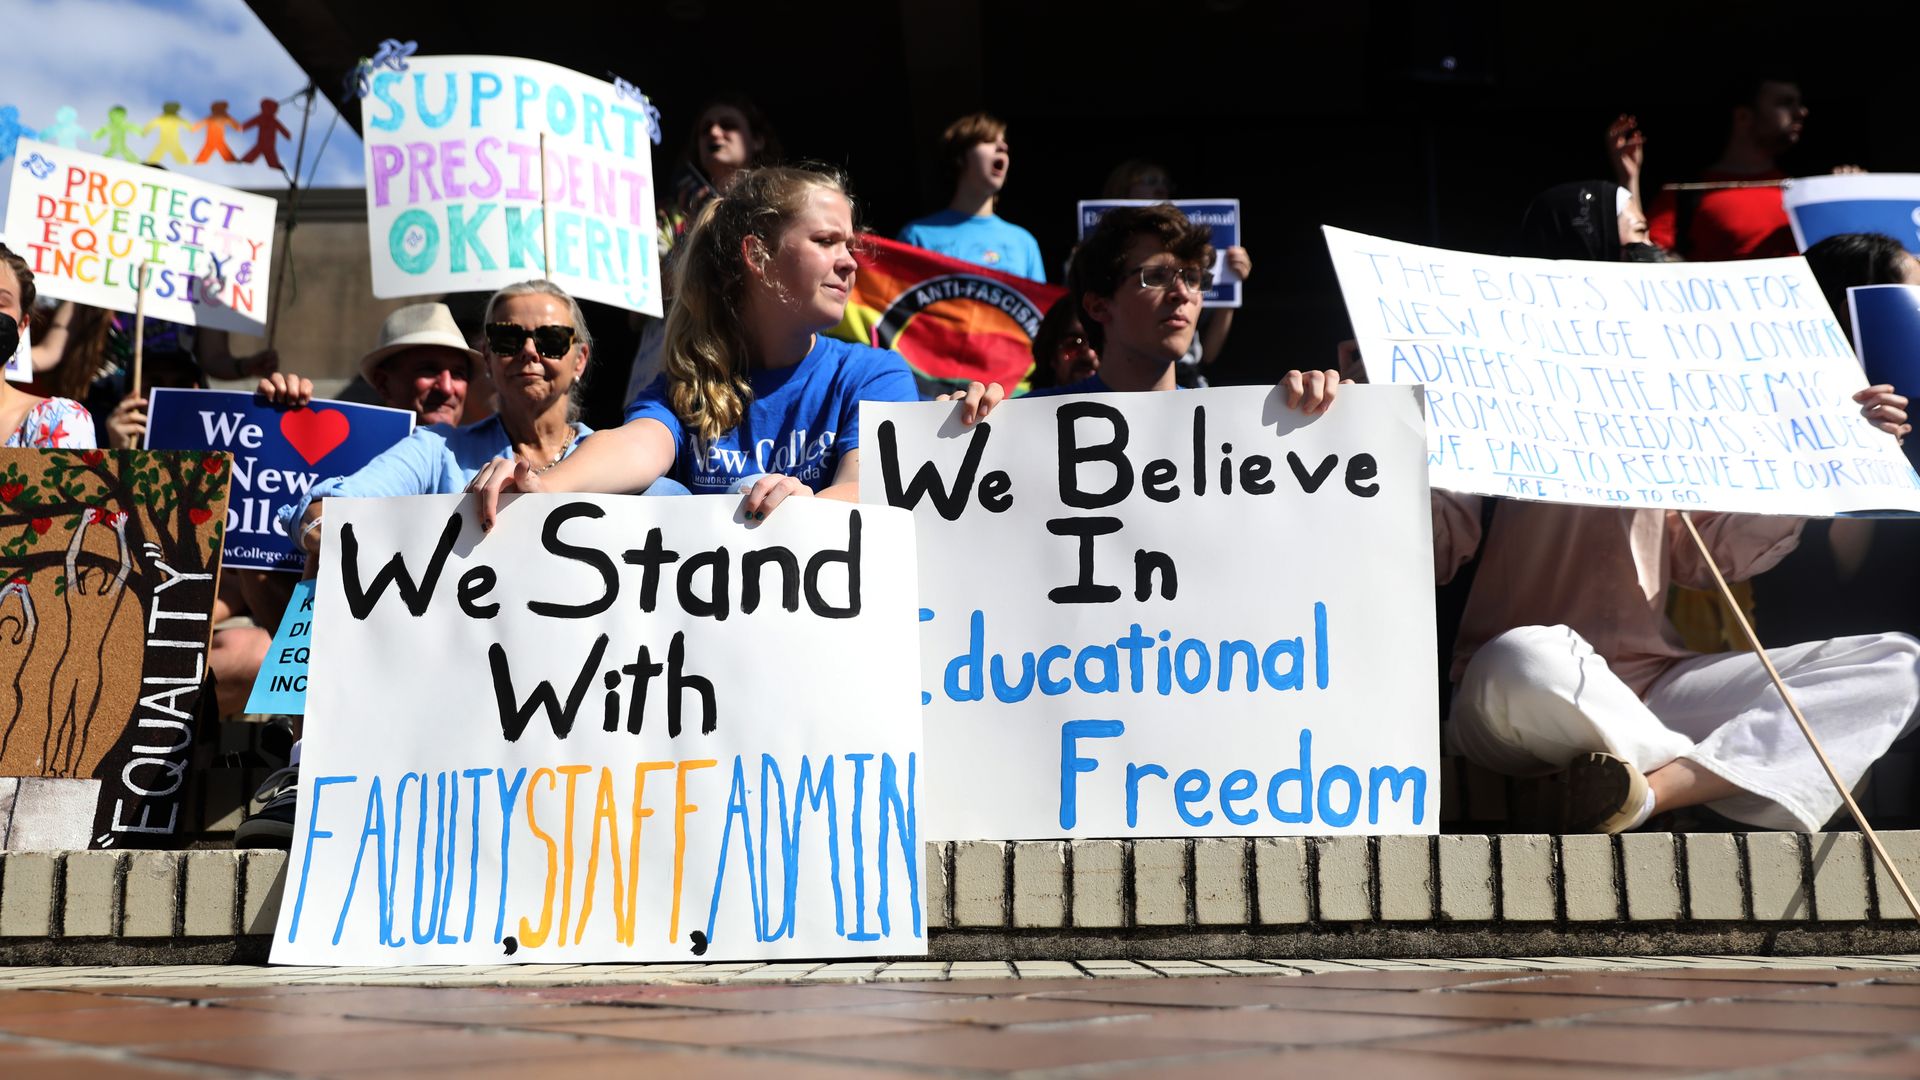 PROTECT
DIVERSITY
EQUITY &
INCLUSION
SUPPORT
PRESIDENT
OKKER!!
ANTI-FASCISM
We
New
wCollege.org
New College
HONORS
EQUALITY"
DI
EQ
INC
We Stand
With
FACULTY, STAFF, ADMIN
We Believe
In
Educational
Freedom
THE B.O.T.'S VISION FOR
NEW COLLEGE NO LONGER
ADHERES TO THE ACADEMIC
PROMISES, FREEDOMS, & VALUES
WE PAID TO RECEIVE IF OUR
ARE FORCED TO GO.